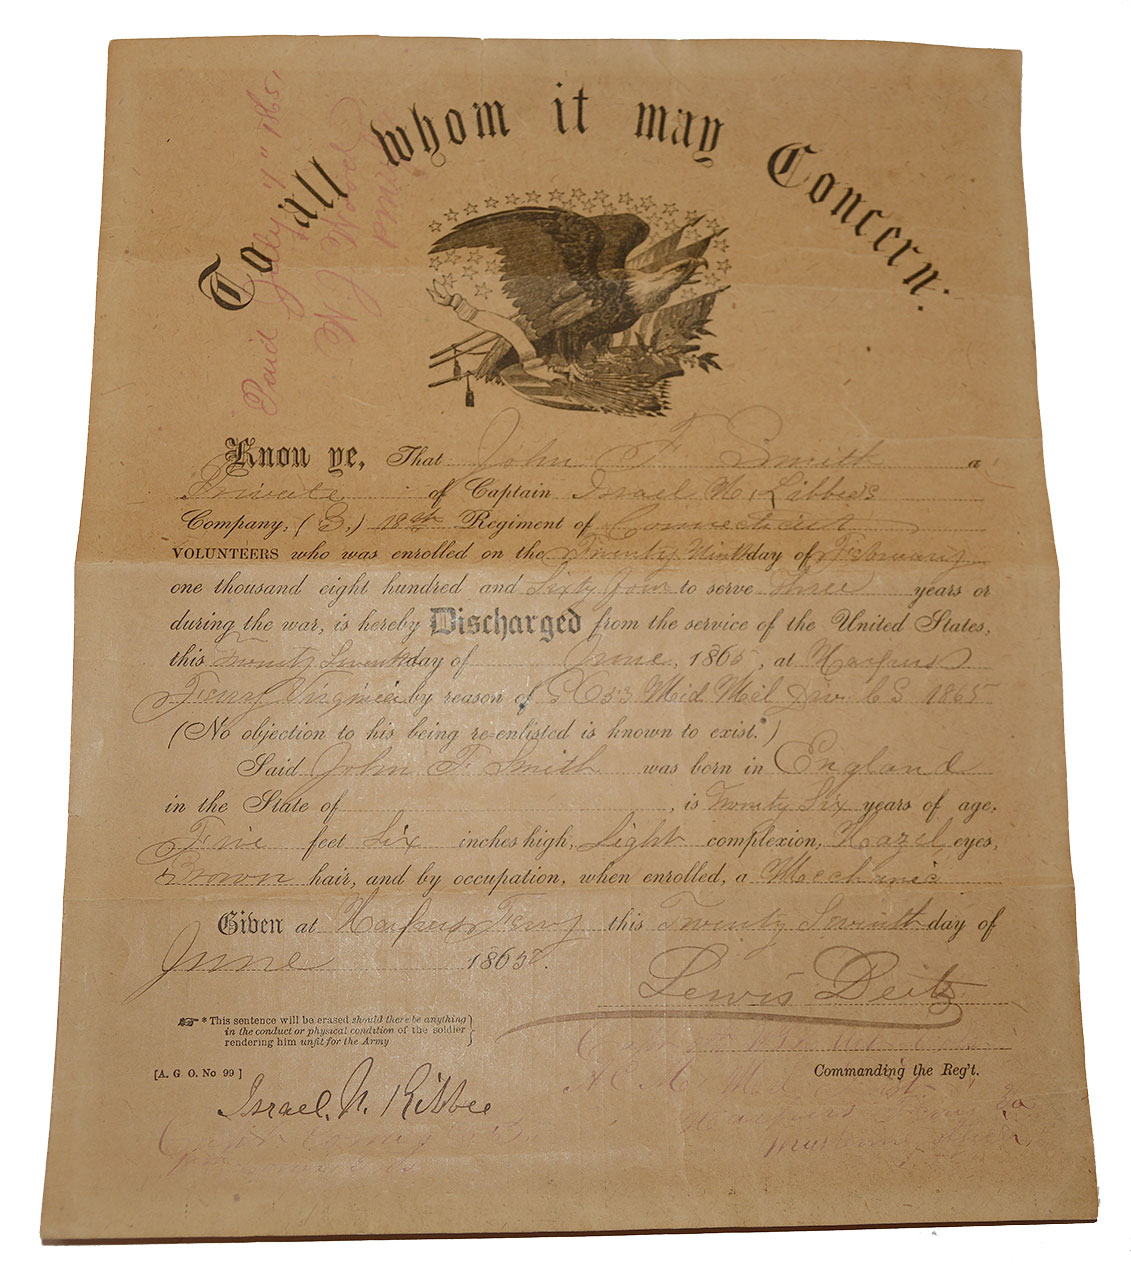 To all whom it may Concern:
Paid July 1" 1865,
W. J. Wood
Know ye, That John F. Smith a
Private of Captain Israel N. Libbee's
Company, (B,) 18th Regiment of Connecticut
VOLUNTEERS who was enrolled on the Twenty Ninth day of February
one thousand eight hundred and Sixty four to serve Three years or
during the war, is hereby Discharged from the service of the United States,
this Twenty Seventh day of June, 1865, at Harpers
Ferry Virginia by reason of Mid Mil Div CS 1865
(No objection to his being re-enlisted is known to exist.*)
Said John F. Smith was born in England
in the State of , is Twenty Six years of age,
Five feet Six inches high, Light complexion, Hazel eyes,
Brown hair, and by occupation, when enrolled, a Mechanic
Given at Harpers Ferry this Twenty Seventh day of
June 1865.
Lewis Deitz
*This sentence will be erased should there be anything
in the conduct or physical condition of the soldier
rendering him unfit for the Army
[A. G O. No 99]
Commanding the Reg't.
Israel. N. Libbee
Harpers Ferry Va
Mustering Officer